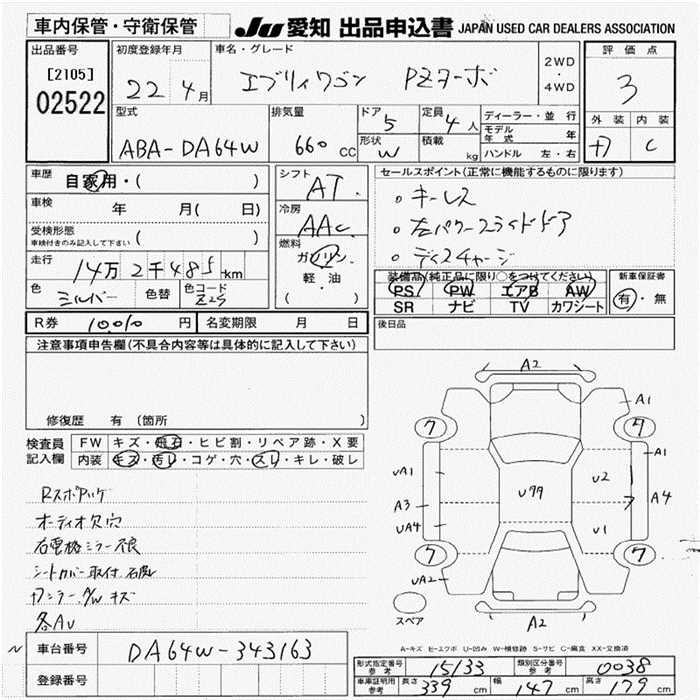 車内保管・守衛保管 JU 愛知 出品申込書 JAPAN USED CAR DEALERS ASSOCIATION
出品番号
[2105]
02522
初度登録年月
22 年 4月
車名・グレード
エブリィワゴン PZターボ
2WD
・
4WD
評価点
3
外装 内装
C
型式
ABA-DA64W
排気量
660 CC
ドア
5
形状
W
定員
4人
積載
kg
ディーラー・並行
モデル年式 年
ハンドル 左・右
車歴
自家用・( )
車検
年 月( 日)
受検形態
車検付きのみ記入して下さい ( )
走行
14万2千485km
色
シルバー
色替
色コード
Z2S
シフト
AT
冷房
AAC
燃料
ガソリン
軽・油
( )
セールスポイント(正常に機能するものに限ります)
・キーレス
・左パワースライドドア
・ディスチャージ
装備品(純正品に限り○をつけてください)
PS PW エアB AW
SR ナビ TV カワシート
新車保証書
有・無
R券 10,010 円
名変期限 月 日
後日品
注意事項申告欄(不具合内容等は具体的に記入して下さい)
修復歴 有(箇所 )
検査員記入欄
FW キズ・飛石・ヒビ割・リペア跡・X要
内装 キズ・汚レ・コゲ・穴・スレ・キレ・破レ
Rスポアッケ
オーディオ欠穴
右電格ミラー不良
シートカバー取付
キズ
各AU
A2
A1
7 7
A1
UA1
U2
A3
U99
A4
UA4
U1
7 7
UA2
A2
スペア
A-キズ E-エクボ U-凹み W-補修跡 S-サビ C-腐食 XX-交換済
車台番号 DA64W-343163
登録番号
形式指定番号 参考 15133
類別区分番号 参考 0038
車庫証明用 参考 長さ 339 cm 幅 147 cm 高さ 179 cm